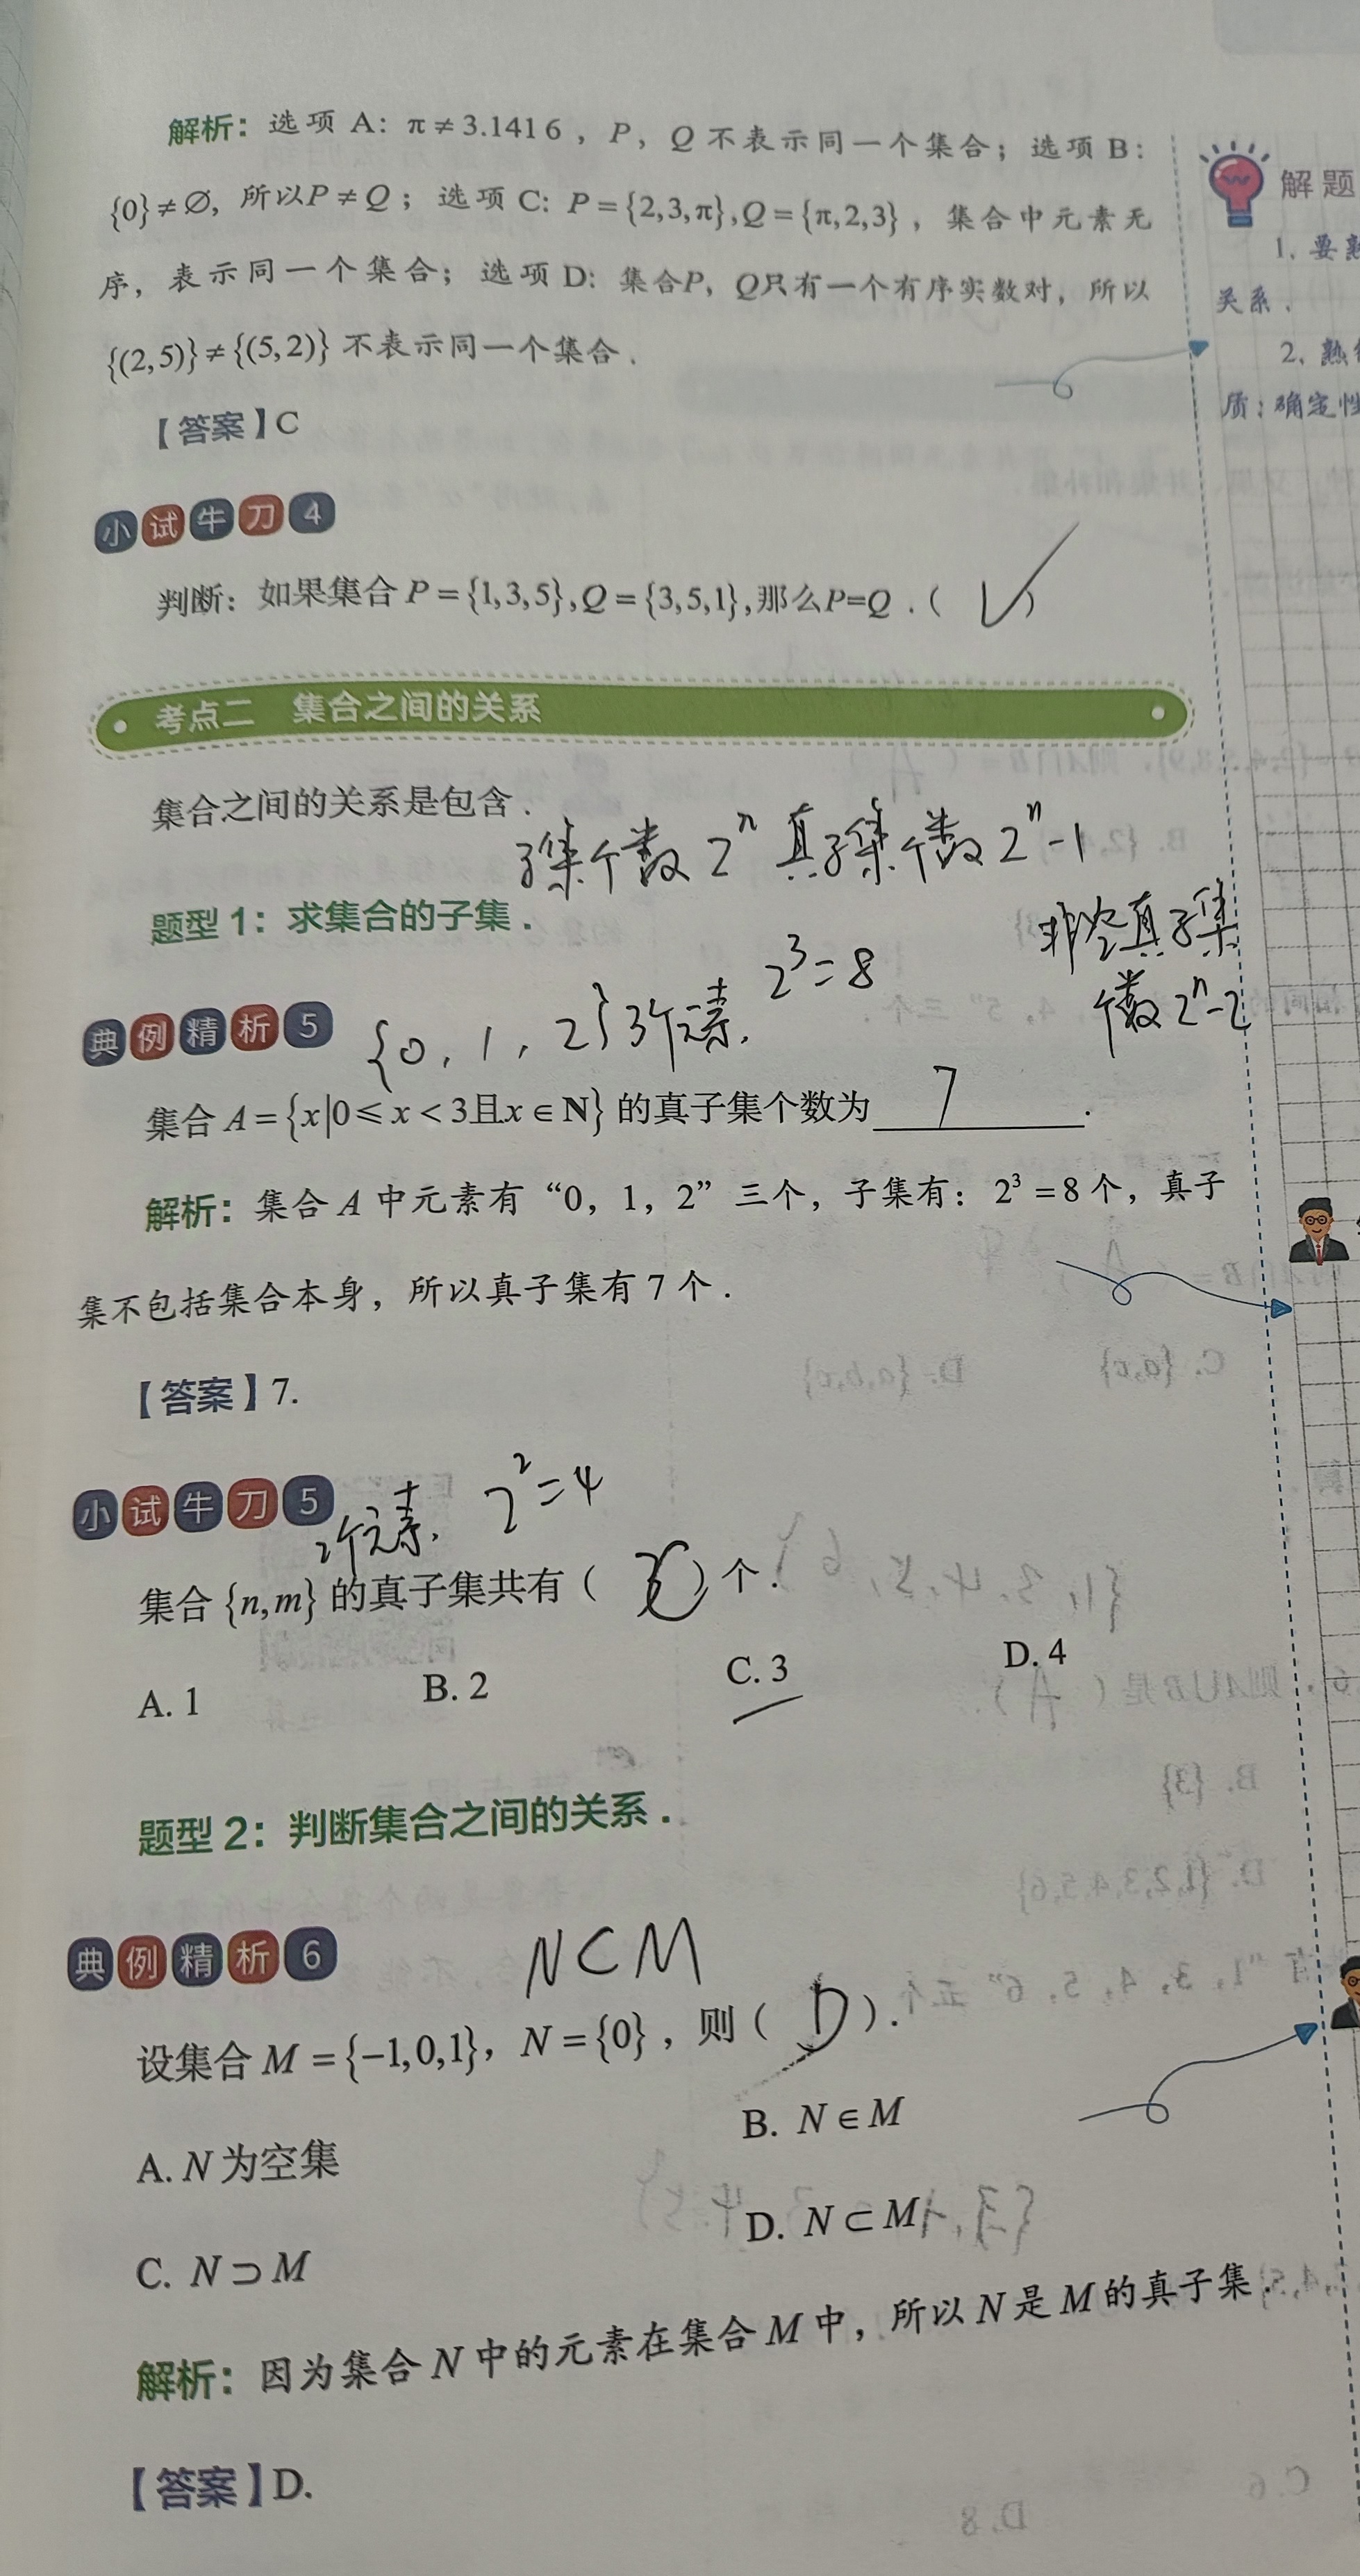 解析：选项 A：π≠3.1416，P，Q 不表示同一个集合；选项 B：
{0}≠∅，所以P≠Q；选项 C：P={2,3,π},Q={π,2,3}，集合中元素无
序，表示同一个集合；选项 D：集合P，Q只有一个有序实数对，所以
{(2,5)}≠{(5,2)} 不表示同一个集合．
【答案】C
解题
1. 要熟
关系．
2. 熟
质：确定性
小试牛刀 4
判断：如果集合 P={1,3,5},Q={3,5,1},那么P=Q．（ √ ）
考点二 集合之间的关系
集合之间的关系是包含．
子集个数 2ⁿ 真子集个数 2ⁿ-1
题型 1：求集合的子集．
非空真子集
个数 2ⁿ-2
典例精析 5
{0, 1, 2} 3个元素. 2³=8
集合 A={x|0≤x<3且x∈N} 的真子集个数为 7 ．
解析：集合 A 中元素有“0，1，2”三个，子集有：2³=8 个，真子
集不包括集合本身，所以真子集有 7 个．
【答案】7.
小试牛刀 5
2个元素. 2²=4
集合 {n,m} 的真子集共有（ C ）个．
A. 1 B. 2 C. 3 D. 4
题型 2：判断集合之间的关系．
典例精析 6
N⊂M
设集合 M={-1,0,1}，N={0}，则（ D ）．
A. N 为空集 B. N∈M
C. N⊃M D. N⊂M
解析：因为集合 N 中的元素在集合 M 中，所以 N 是 M 的真子集．
【答案】D.